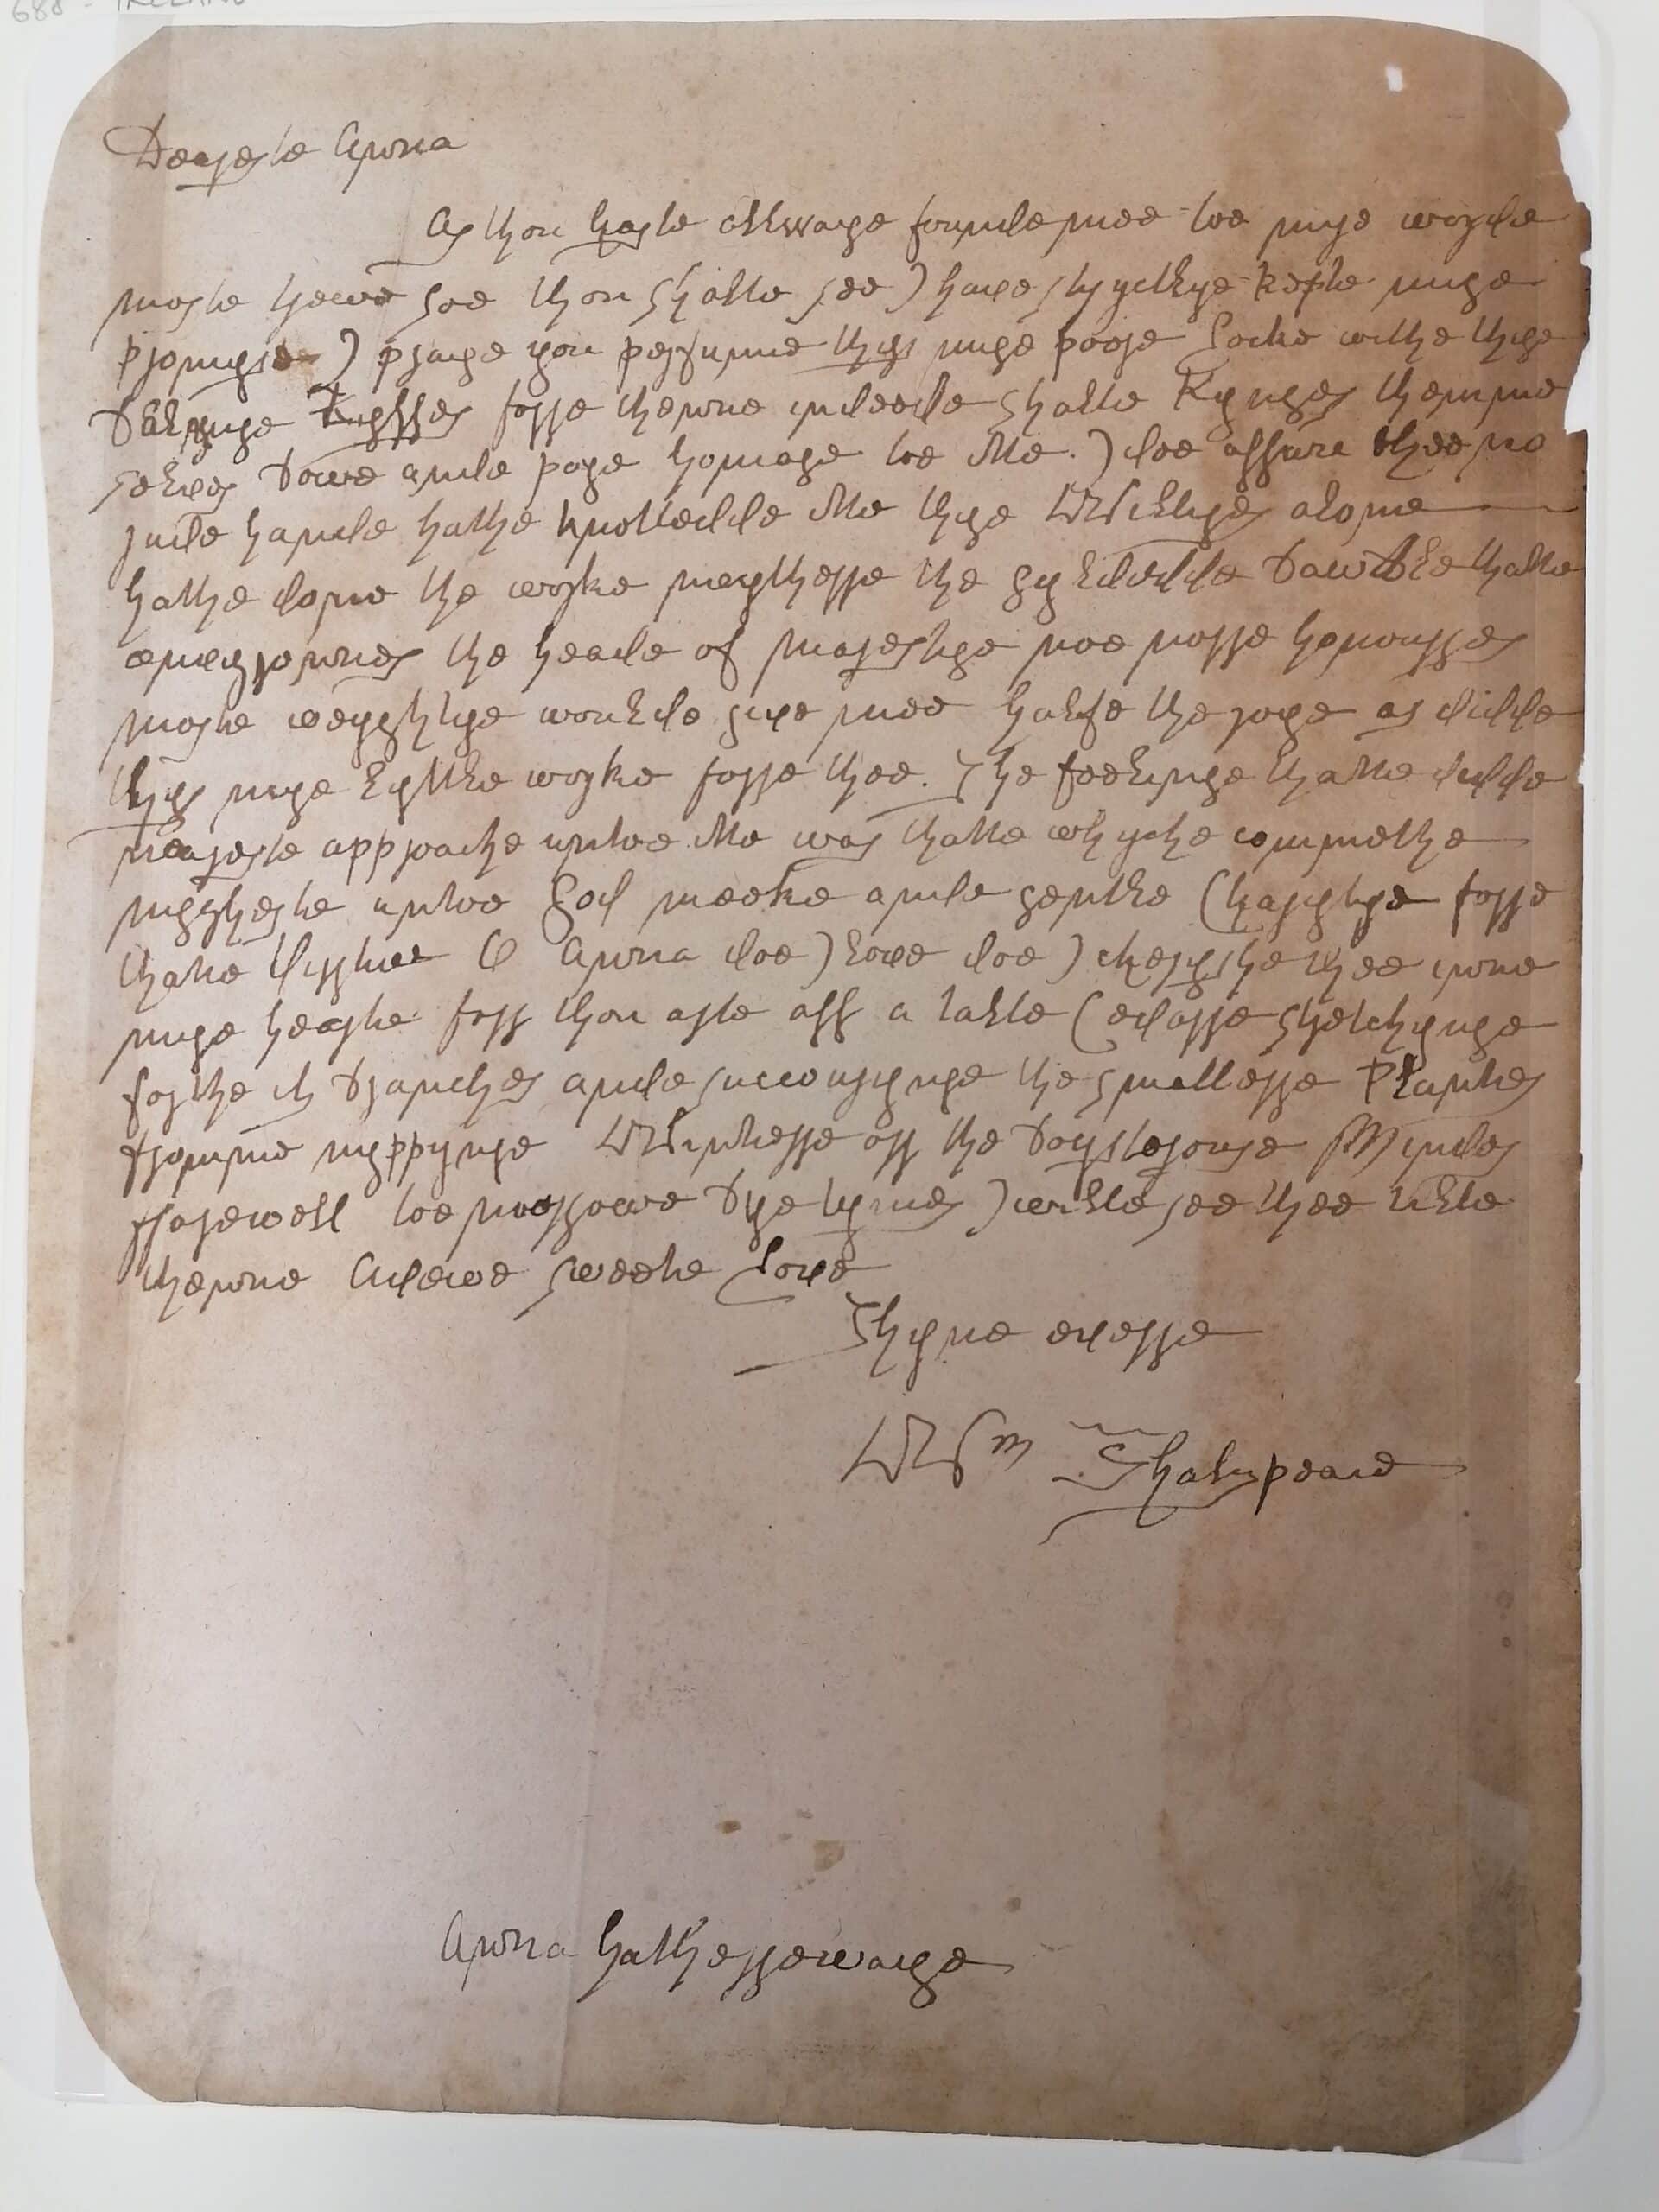 688 - IRELAND
Dearesste Anna
As thou haste alwaye founde mee toe mye worde
moste trewe soe thou shalte see I have stryctlye kepte mye
promyse I praye you perfume thys mye poore Locke withe thye
balmye Kysses forre thenne indeede shalle Kynges themme
selves bowe ande paye homage toe itte. I doe assure thee no
rude hande hathe knottedde itte thye Willys alone
hathe done the worke neytherre the gyldedde bawble thatte
envyronnes the heade of majestye noe norre honourres
moste weyghtye woulde give mee halfe the joye as didde
thys mye lyttle worke forre thee. The feelinge thatte didde
neareste approache untoe itte was thatte whyche commethe
nygheste untoe God meeke ande gentle Charytye forre
thatte Virrtue O Anna doe I love doe I cheryshe thee inne
mye hearte forr thou arte ass a talle Cedarre stretchynge
forthe its branches ande succourynge the smallerre Plants
fromme nyppynge Winterre orr the boysterouse Wyndes
Farewell toe morrowe bye tymes I wille see thee tille
thenne Adewe sweete Love
Thyne everre
Wm Shakspeare
Anna Hatherrewaye